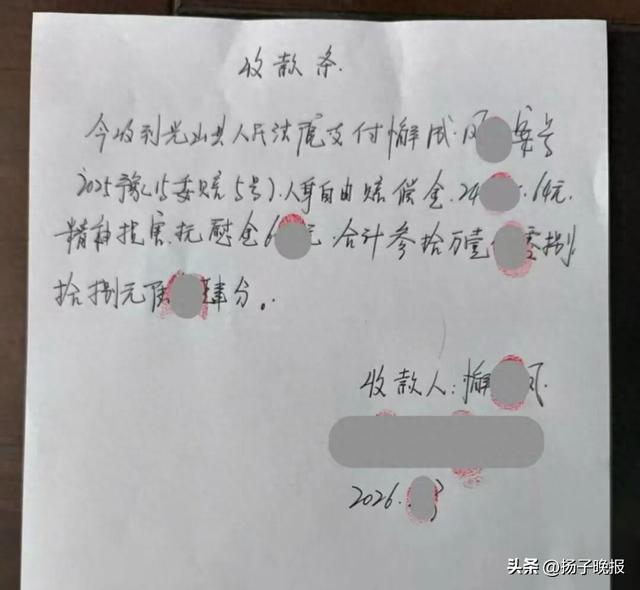 收款条.
今收到光山县人民法院支付懈成.凤 案号
2025豫15委赔5号)人身自由赔偿金.24 .64元.
精神损害抚慰金6 元.合计叁拾万壹 零捌
拾捌元陆 肆分。
收款人:懈 凤.
2026.
头条 @扬子晚报